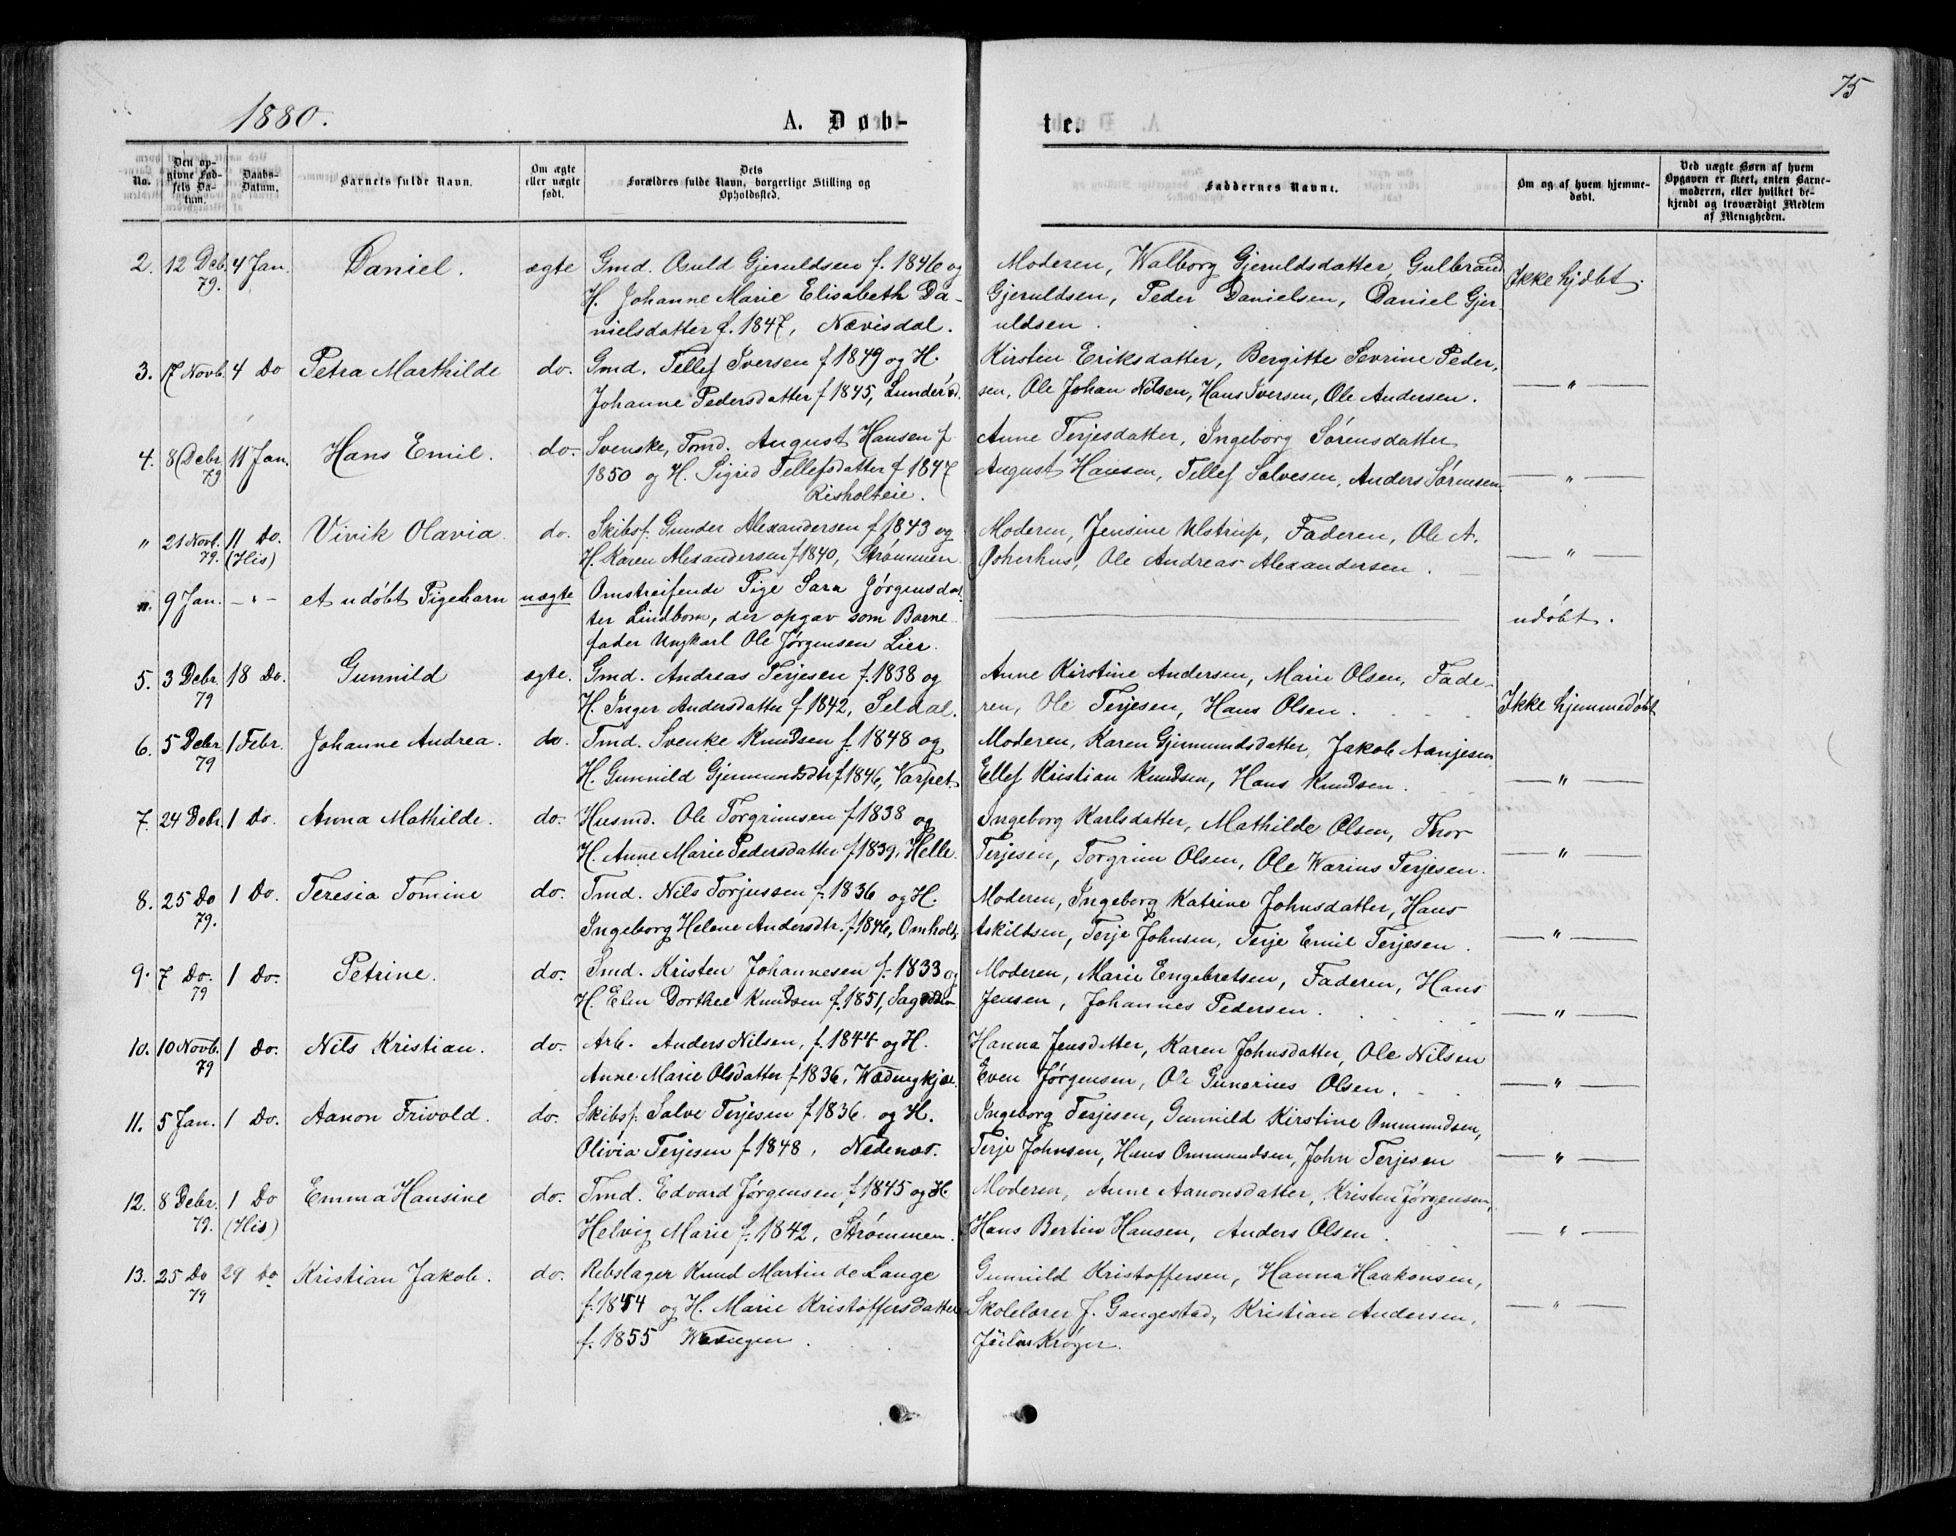 1880.
A. Døb-
te.
75
No.
Den op-
givne Fød-
sels Da-
tum.
Daabs-
Datum.
Barnets fulde Navn.
Om ægte
eller uægte
født.
Dets
Forældres fulde Navn, borgerlige Stilling og
Opholdssted.
Faddernes Navne.
Om og af hvem hjemme-
døbt.
Ved uægte Børn af hvem
Opgaven er skeet, enten Barne-
moderen, eller hvilket be-
kjendt og troværdigt Medlem
af Menigheden.
2. 12 Deb. 79. 4 Jan. Daniel. ægte
Gmd. Osuld Gjeruldsen f. 1846 og
H. Johanne Marie Elisabeth Da-
nielsdatter f. 1847, Nævisdal.
Moderen, Walborg Gjeruldsdatter, Gulbrand
Gjeruldsen, Peder Danielsen, Daniel Gjer-
uldsen.
Ikke hjdbt.
3. 17 Novb. 4 Do Petra Marthilde do.
Gmd. Tellef Iversen f 1849 og H.
Johanne Pedersdatter f 1845, Lunderød.
Kirsten Eriksdatter, Bergitte Sevrine Peder-
sen, Ole Johan Nilsen, Hans Iversen, Ole Andersen.
— " —
4. 8 Debr. 79 11 Jan. Hans Emil. do.
Svenske, Tmd. August Hansen f
1850 og H. Sigrid Tellefsdatter f 1847
Risholteie.
Anne Terjesdatter, Ingeborg Sørensdatter
August Hansen, Tellef Salvesen, Anders Sørensen
— " —
" 21 Novb. 79. 11 Do. (His) Vivik Olavia. do.
Skibsf. Gunder Alexandersen f 1843 og
H. Karen Alexandersen f. 1840, Strømmen
Moderen, Jensine Ulstrup, Faderen, Ole A.
Ole Andreas Alexandersen.
— " —
" 9 Jan. — " — et udøbt Pigebarn uægte
Omstreifende Pige Sara Jørgensdat-
ter Lindbom, der opgav som Barne-
fader Ungkarl Ole Jørgensen Lier.
udøbt.
5. 3 Debr. 79 18 Do. Gunnild ægte.
Gmd. Andreas Terjesen f. 1838 og
H. Inger Andersdatter f 1842, Seldal.
Anne Kirstine Andersen, Marie Olsen, Fade-
ren, Ole Terjesen, Hans Olsen.
Ikke hjemmedøbt
6. 5 Debr. 79 1 Febr. Johanne Andrea. do.
Tmd. Svenke Knudsen f. 1848 og
H. Gunnild Gjermundsdtr f 1846, Varpet.
Moderen, Karen Gjermundsdatter, Jakob Aanjesen
Ellef Kristian Knudsen, Hans Knudsen.
— " —
7. 24 Debr. 1 Do. Anna Mathilde. do.
Husmd. Ole Torgrimsen f 1838 og
H. Anne Marie Pedersdatter f 1839, Helle.
Ingeborg Karlsdatter, Mathilde Olsen, Thor
Terjesen, Torgrim Olsen, Ole Warius Terjesen.
— " —
8. 25 Do 79. 1 Do. Teresia Tomine do.
Tmd. Nils Torjussen f. 1836 og H.
Ingeborg Helene Andersdtr. f 1846, Omholt.
Moderen, Ingeborg Katrine Johnsdatter, Hans
Askildsen, Terje Johnsen, Terje Emil Terjesen.
— " —
9. 7 Do. 79 1 Do. Petrine. do.
Smd. Kristen Johannesen f. 1833 og
H. Elen Dorthee Knudsen f. 1851,
Moderen, Marie Engebretsen, Faderen, Hans
Jensen, Johannes Pedersen.
— " —
10. 10 Novb. 79 1 Do. Nils Kristian. do.
Arb. Anders Nilsen, f. 1844 og H.
Anne Marie Olsdatter f. 1836,
Hanna Jensdatter, Karen Johnsdatter, Ole Nilsen
Even Jørgensen, Ole Gunerius Olsen.
— " —
11. 5 Jan. 1 Do. Aanon Frivold. do.
Skibsf. Salve Terjesen f 1836 og H.
Olivia Terjesen f 1848, Nedenæs.
Ingeborg Terjesen, Gunnild Kirstine Ommundsen,
Terje Johnsen, Hans Ommundsen, John Terjesen
— " —
12. 8 Debr. 79. 1 Do (His) Emma Hansine do.
Tmd. Edvard Jørgensen, f 1845 og H.
Helvig Marie f. 1842, Strømmen.
Moderen, Anne Aanonsdatter, Kristen Jørgensen,
Hans Bertin Hansen, Anders Olsen.
— " —
13. 25 Do 79 29 Do Kristian Jakob. do.
Rebslager Knud Martin de Lange
f. 1854 og H. Marie Kristoffersdatter
f. 1855
Gunnild Kristoffersen, Hanna Haakonsen,
Skolelærer J. Gangestad, Kristian Andersen,
Krøger.
— " —